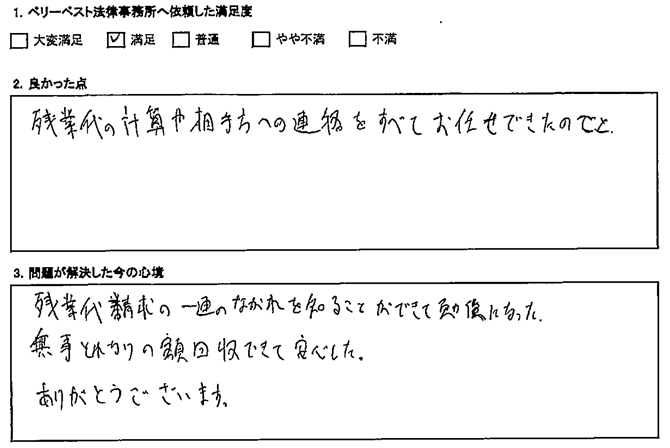 1. ベリーベスト法律事務所へ依頼した満足度
大変満足 満足 普通 やや不満 不満
2. 良かった点
残業代の計算や相手方への連絡をすべてお任せできたのでと.
3. 問題が解決した今の心境
残業代請求の一連のながれを知ることができて勉強になった.
無事とれかりの額回収できて安心した。
ありがとうございます。